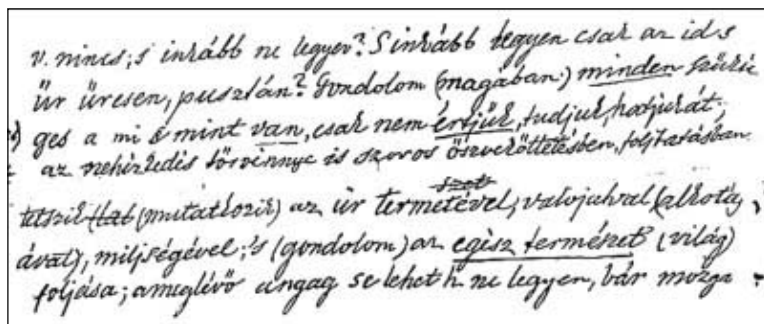 v. nincs; s inkább ne legyen? S inkább legyen csak az id. s
űr üresen, pusztán? Gondolom (magában) minden szüksé
ges a mi s mint van, csak nem értjük, tudjuk, hatjuk át;
az nehézkedés törvénnye is szoros öszveköttetésben, foljtatásban
szet
tetszik (mutatkozik) az űr termetével, valojával (alkotá
ával), miljségével; 's (gondolom) az egész természet (világ)
foljása; a meglévő angag se lehet h. ne legyen, bár mozga